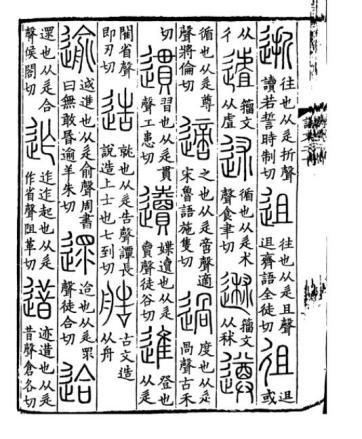 逝往也从辵折聲讀若誓時制切𨑢往也从辵且聲𨑢齊語全徒切徂𨑢或
从彳籒文从虘述循也从辵术聲食聿切籒文从秫遵
循也从辵尊聲將倫切適之也从辵啻聲適宋魯語施隻切過度也从辵咼聲古禾
切遦習也从辵貫聲工患切媟也从辵賣聲徒谷切進登也从辵
閵省聲即刃切造就也从辵告聲譚長說造上士也七到切艁古文造从舟
逾進也从辵俞聲周書曰無敢昬逾羊朱切遝迨也从辵眔聲徒合切迨
遝也从辵合聲侯閤切迮迮迮起也从辵作省聲阻革切逪迹逪也从辵昔聲倉各切